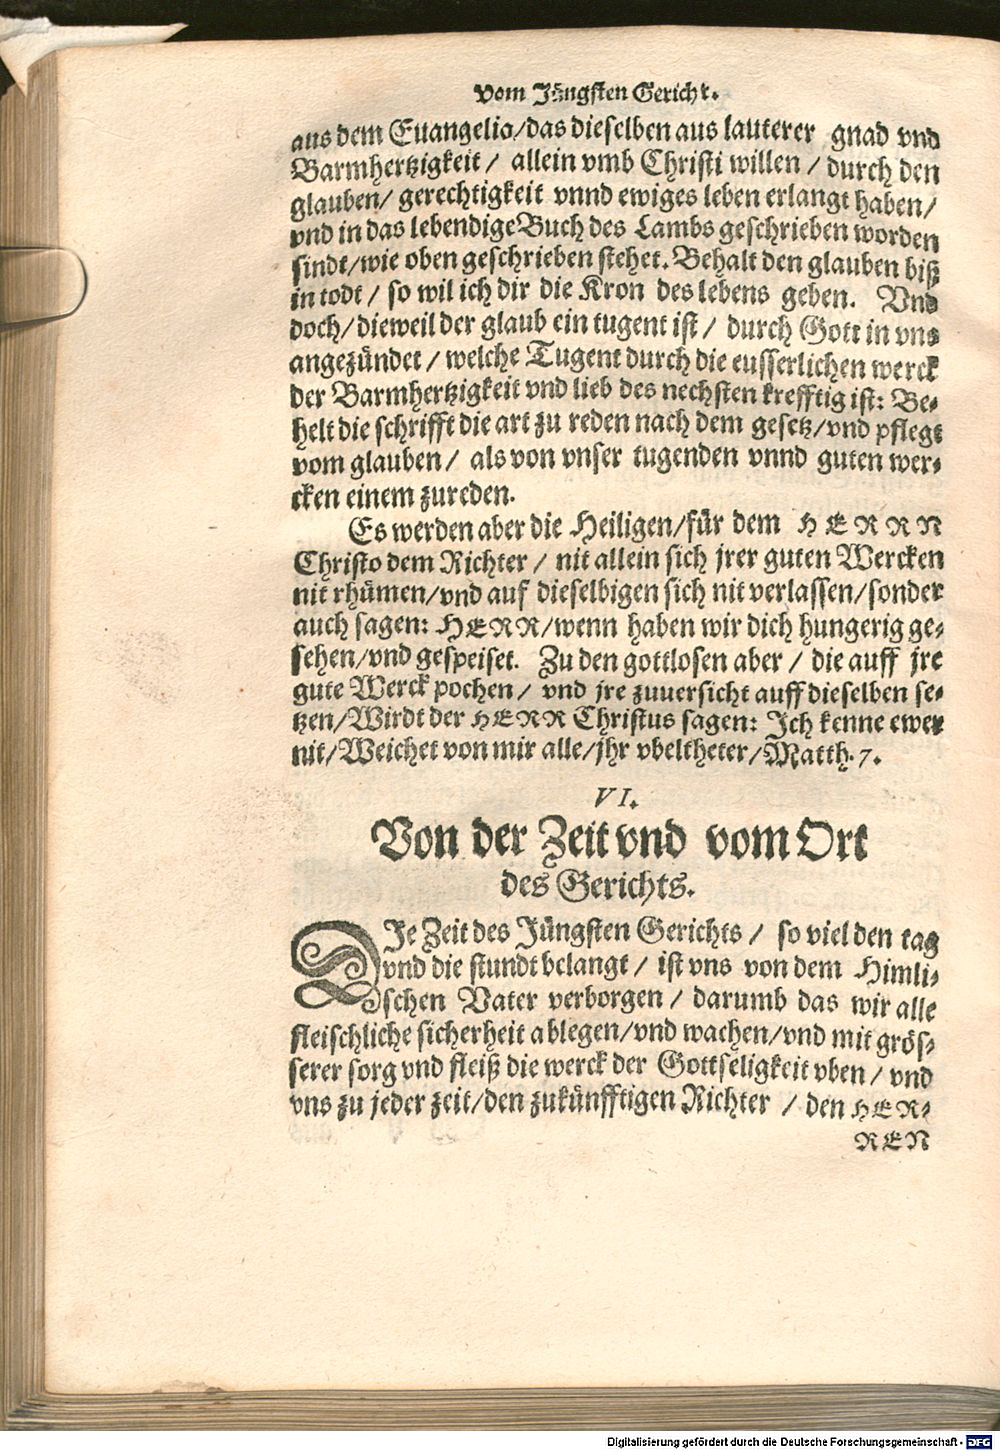 Vom Jüngsten Gericht.
aus dem Euangelio/das dieselben aus lauterer gnad vnd
Barmhertzigkeit / allein vmb Christi willen / durch den
glauben/ gerechtigkeit vnnd ewiges leben erlangt haben/
vnd in das lebendige Buch des Lambs geschrieben worden
sindt/wie oben geschrieben stehet. Behalt den glauben biß
in todt / so wil ich dir die Kron des lebens geben. Vnd
doch/dieweil der glaub ein tugent ist / durch Gott in vns
angezündet / welche Tugent durch die eusserlichen werck
der Barmhertzigkeit vnd lieb des nechsten krefftig ist: Be-
helt die schrifft die art zu reden nach dem gesetz/vnd pflegt
vom glauben/ als von vnser tugenden vnnd guten wer-
cken einem zureden.
Es werden aber die Heiligen/für dem HERRN
Christo dem Richter / nit allein sich jrer guten Wercken
nit rhümen/vnd auf dieselbigen sich nit verlassen/sonder
auch sagen: HERR/wenn haben wir dich hungerig ge-
sehen/vnd gespeiset. Zu den gottlosen aber / die auff jre
gute Werck pochen/ vnd jre zuuersicht auff dieselben se-
tzen/Wirdt der HERR Christus sagen: Ich kenne ewer
nit/Weichet von mir alle/jhr vbeltheter/Matth. 7.
VI.
Von der Zeit vnd vom Ort
des Gerichts.
DIe Zeit des Jüngsten Gerichts / so viel den tag
vnd die stundt belangt / ist vns von dem Himli-
schen Vater verborgen / darumb das wir alle
fleischliche sicherheit ablegen/vnd wachen/vnd mit grös-
serer sorg vnd fleiß die werck der Gottseligkeit vben / vnd
vns zu jeder zeit/den zukünfftigen Richter / den HER-
REN
Digitalisierung gefördert durch die Deutsche Forschungsgemeinschaft - DFG